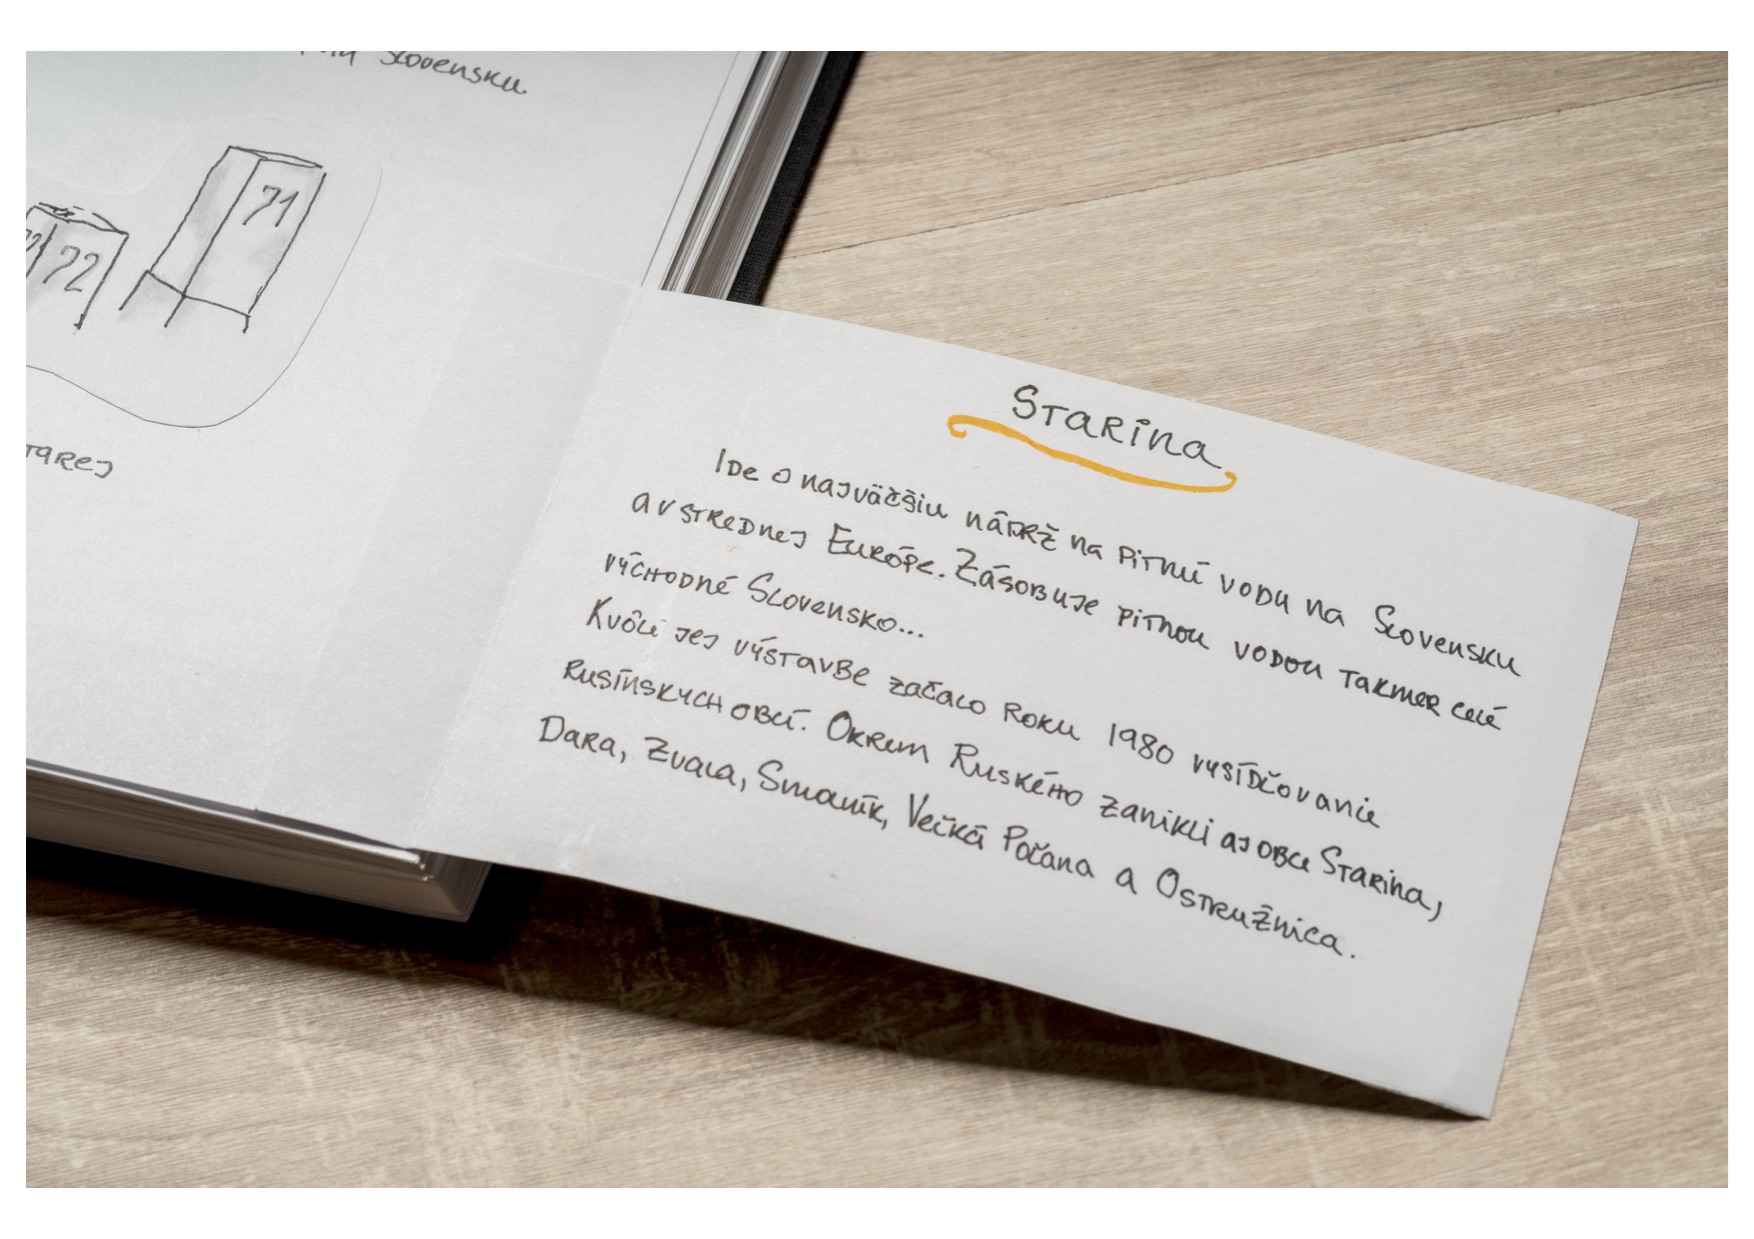 Slovensku.
71
72
Starina
Ide o najväčšiu nádrž na pitnú vodu na Slovensku
a v strednej Európe. Zásobuje pitnou vodou takmer celé
východné Slovensko...
Kvôli jej výstavbe začalo roku 1980 vysídľovanie
rusínskych obcí. Okrem Ruského zanikli aj obce Starina,
Dara, Zvala, Smolník, Veľká Poľana a Ostružnica.